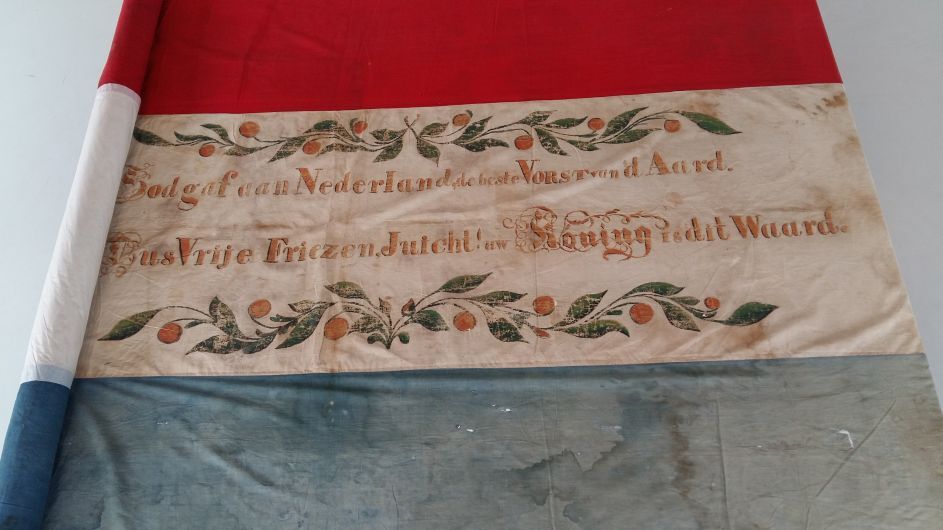 God gaf aan Nederland, de beste VORST van d'Aard.
Dus Vrije Friezen, Juicht! uw Koning is dit Waard.